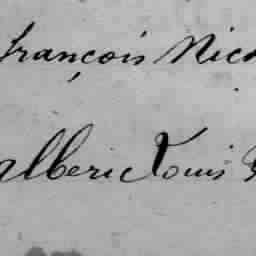 françois Nic
alberic Louis